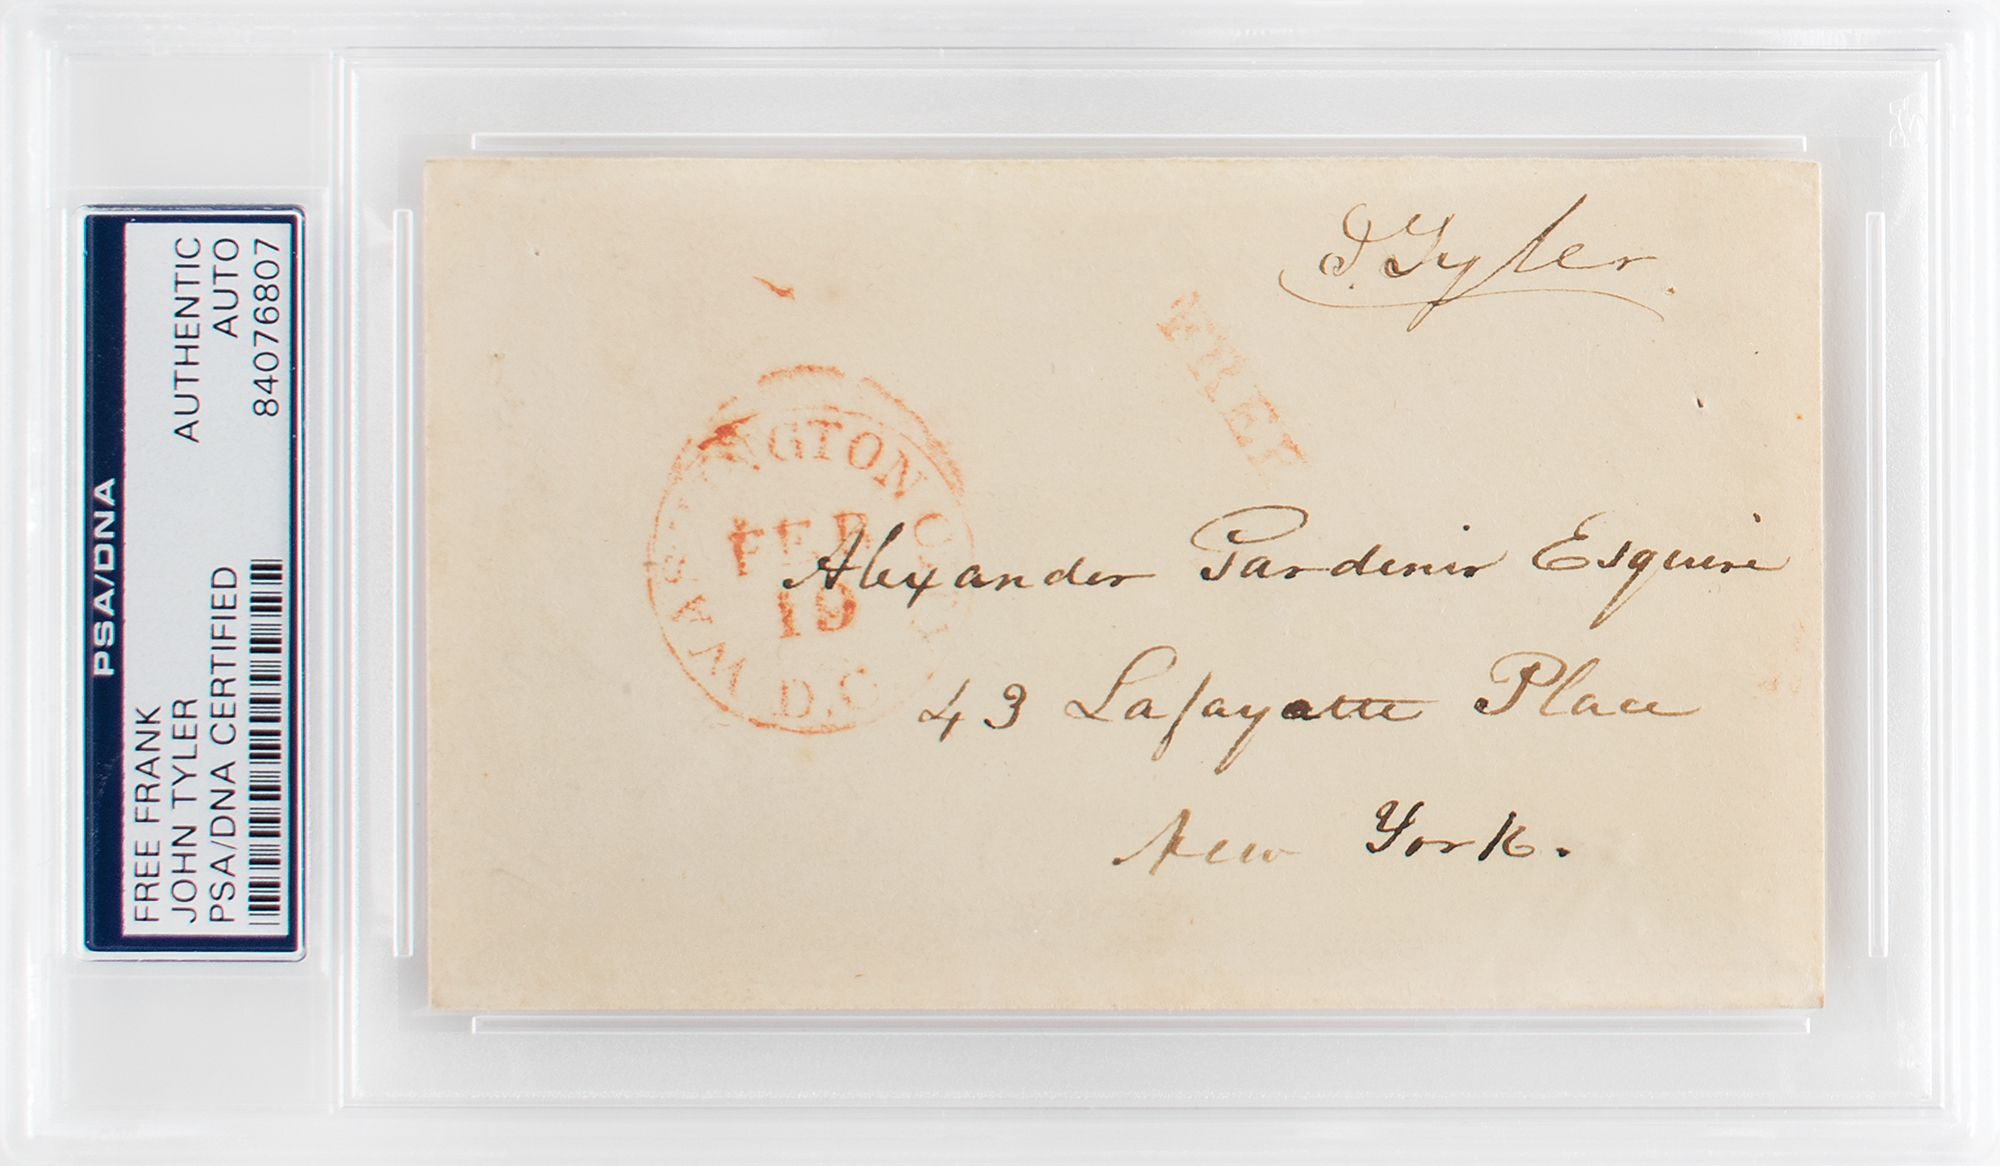 PSA/DNA
FREE FRANK
JOHN TYLER
PSA/DNA CERTIFIED
AUTHENTIC
AUTO
84076807
J. Tyler.
FREE
WASHINGTON CITY
FEB
19
D.C.
Alexander Gardiner Esquire
43 Lafayette Place
New York.
PSA